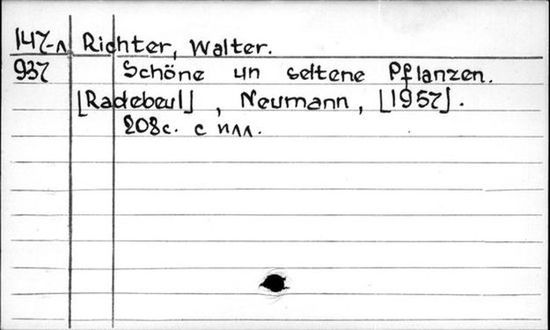 147-л Richter, Walter.
937 Schöne un seltene Pflanzen.
[Radebeul], Neumann, [1957].
208с. с илл.